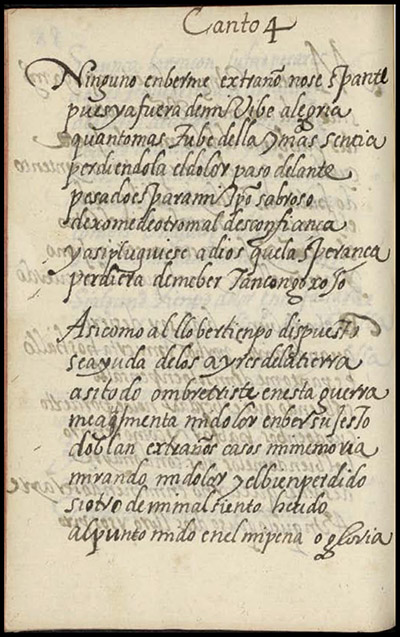 Canto 4
Ninguno enberme extraño nose spante
pues ya fuera de mi Vibe alegria
quantomas tube della y mas sentia
perdiendola el dolor paso delante
pesado es para mi tpo sabroso
dexome de otro mal desconfianca
y asi pluguiese a dios que la speranca
perdiera de me ber tan congoxoso
Asi como al llober tienpo dispuesto
se ayuda de los ayres de la tierra
asi todo ombre triste en esta guerra
me augmenta mi dolor en ber su gesto
doblan extraños casos mi memoria
mirando mi dolor y el bien perdido
si otro de mi mal siento herido
al punto mido en el mi pena o gloria